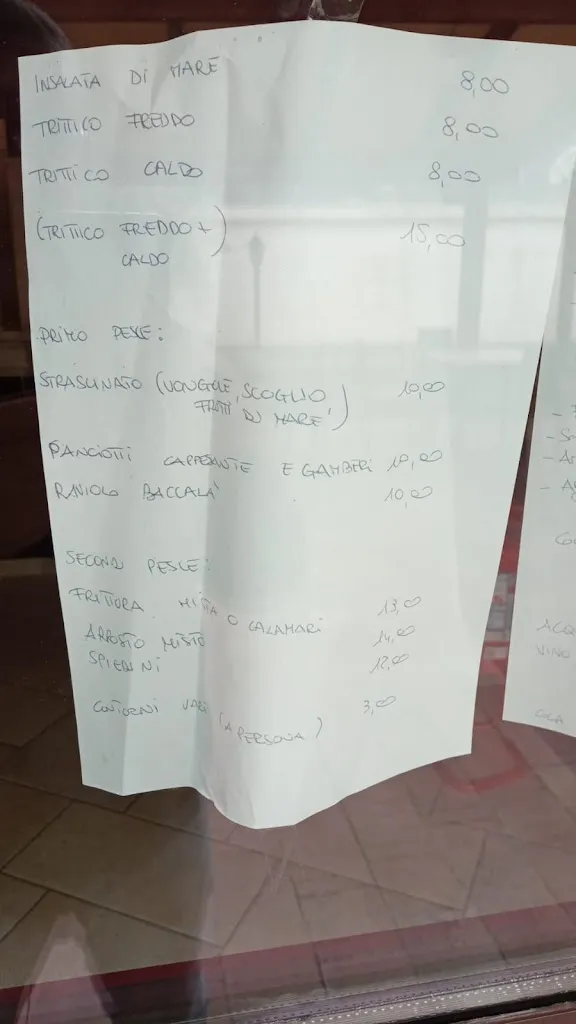 INSALATA DI MARE 8,00
TRITTICO FREDDO 8,00
TRITTICO CALDO 8,00
(TRITTICO FREDDO + 15,00
CALDO)
PRIMO PESCE:
STRASCINATO (VONGOLE, SCOGLIO, 10,00
FRUTTI DI MARE)
PANCIOTTI CAPPESANTE E GAMBERI 10,00
RAVIOLO BACCALA' 10,00
SECONDI PESCE:
FRITTURA MISTA O CALAMARI 13,00
ARROSTO MISTO 14,00
SPIEDINI 12,00
CONTORNI VARI (A PERSONA) 3,00
VINO